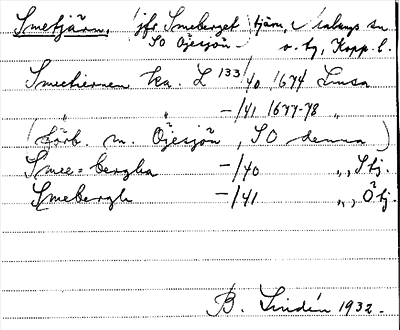 Smetjärn, (jfr Smeberget) tjärn, Malungs sn
SO Öjesjön o. tg, Kopp. l.
Smetiernen ka. L 133/40 1674 Limsa
—/41 1677-78 "
(förb. m. Öjesjön, SO denna)
Smee=bergha —/40 „, Sbj.
Smebergh —/41 „, Öbj.
B. Lindén 1932.